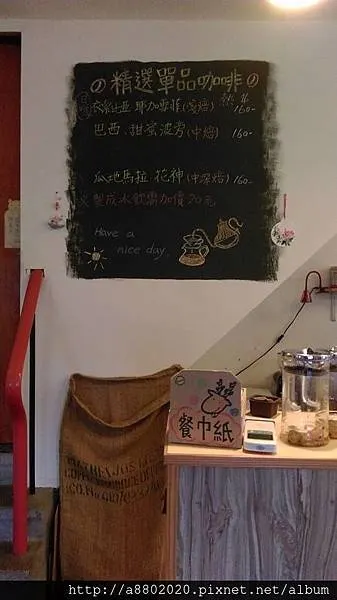 の精選單品咖啡の
熱
衣索比亞 耶加雪菲(淺焙) 160-
巴西.甜蜜波旁(中焙) 160-
瓜地馬拉 花神(中深焙) 160-
製成冰飲需加價20元
Have a
nice day.
餐巾紙
http://a8802020.pixnet.net/album